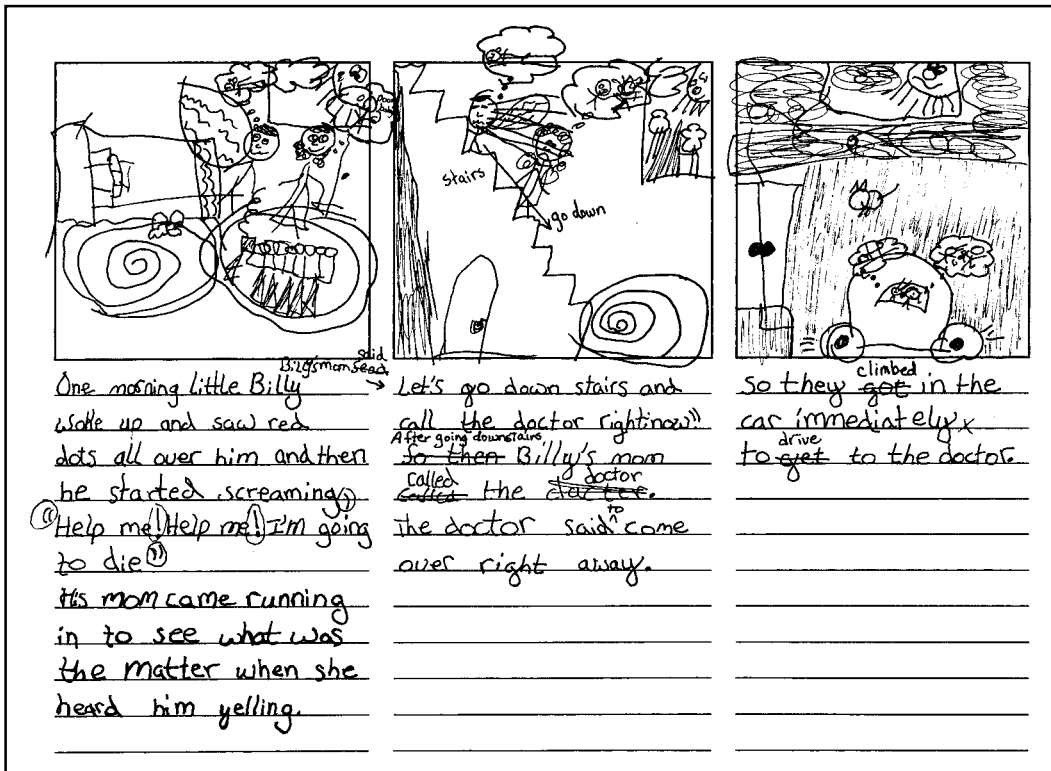 stairs
go down
One morning little Billy
woke up and saw red
dots all over him and then
he started screaming,
"Help me! Help me! I'm going
to die"
His mom came running
in to see what was
the matter when she
heard him yelling.
said
Billy's mom sead
Let's go down stairs and
call the doctor right now"
After going downstairs
So then Billy's mom
called
the doctor.
to
The doctor said come
over right away.
climbed
So they got in the
car immediately
drive
to get to the doctor.